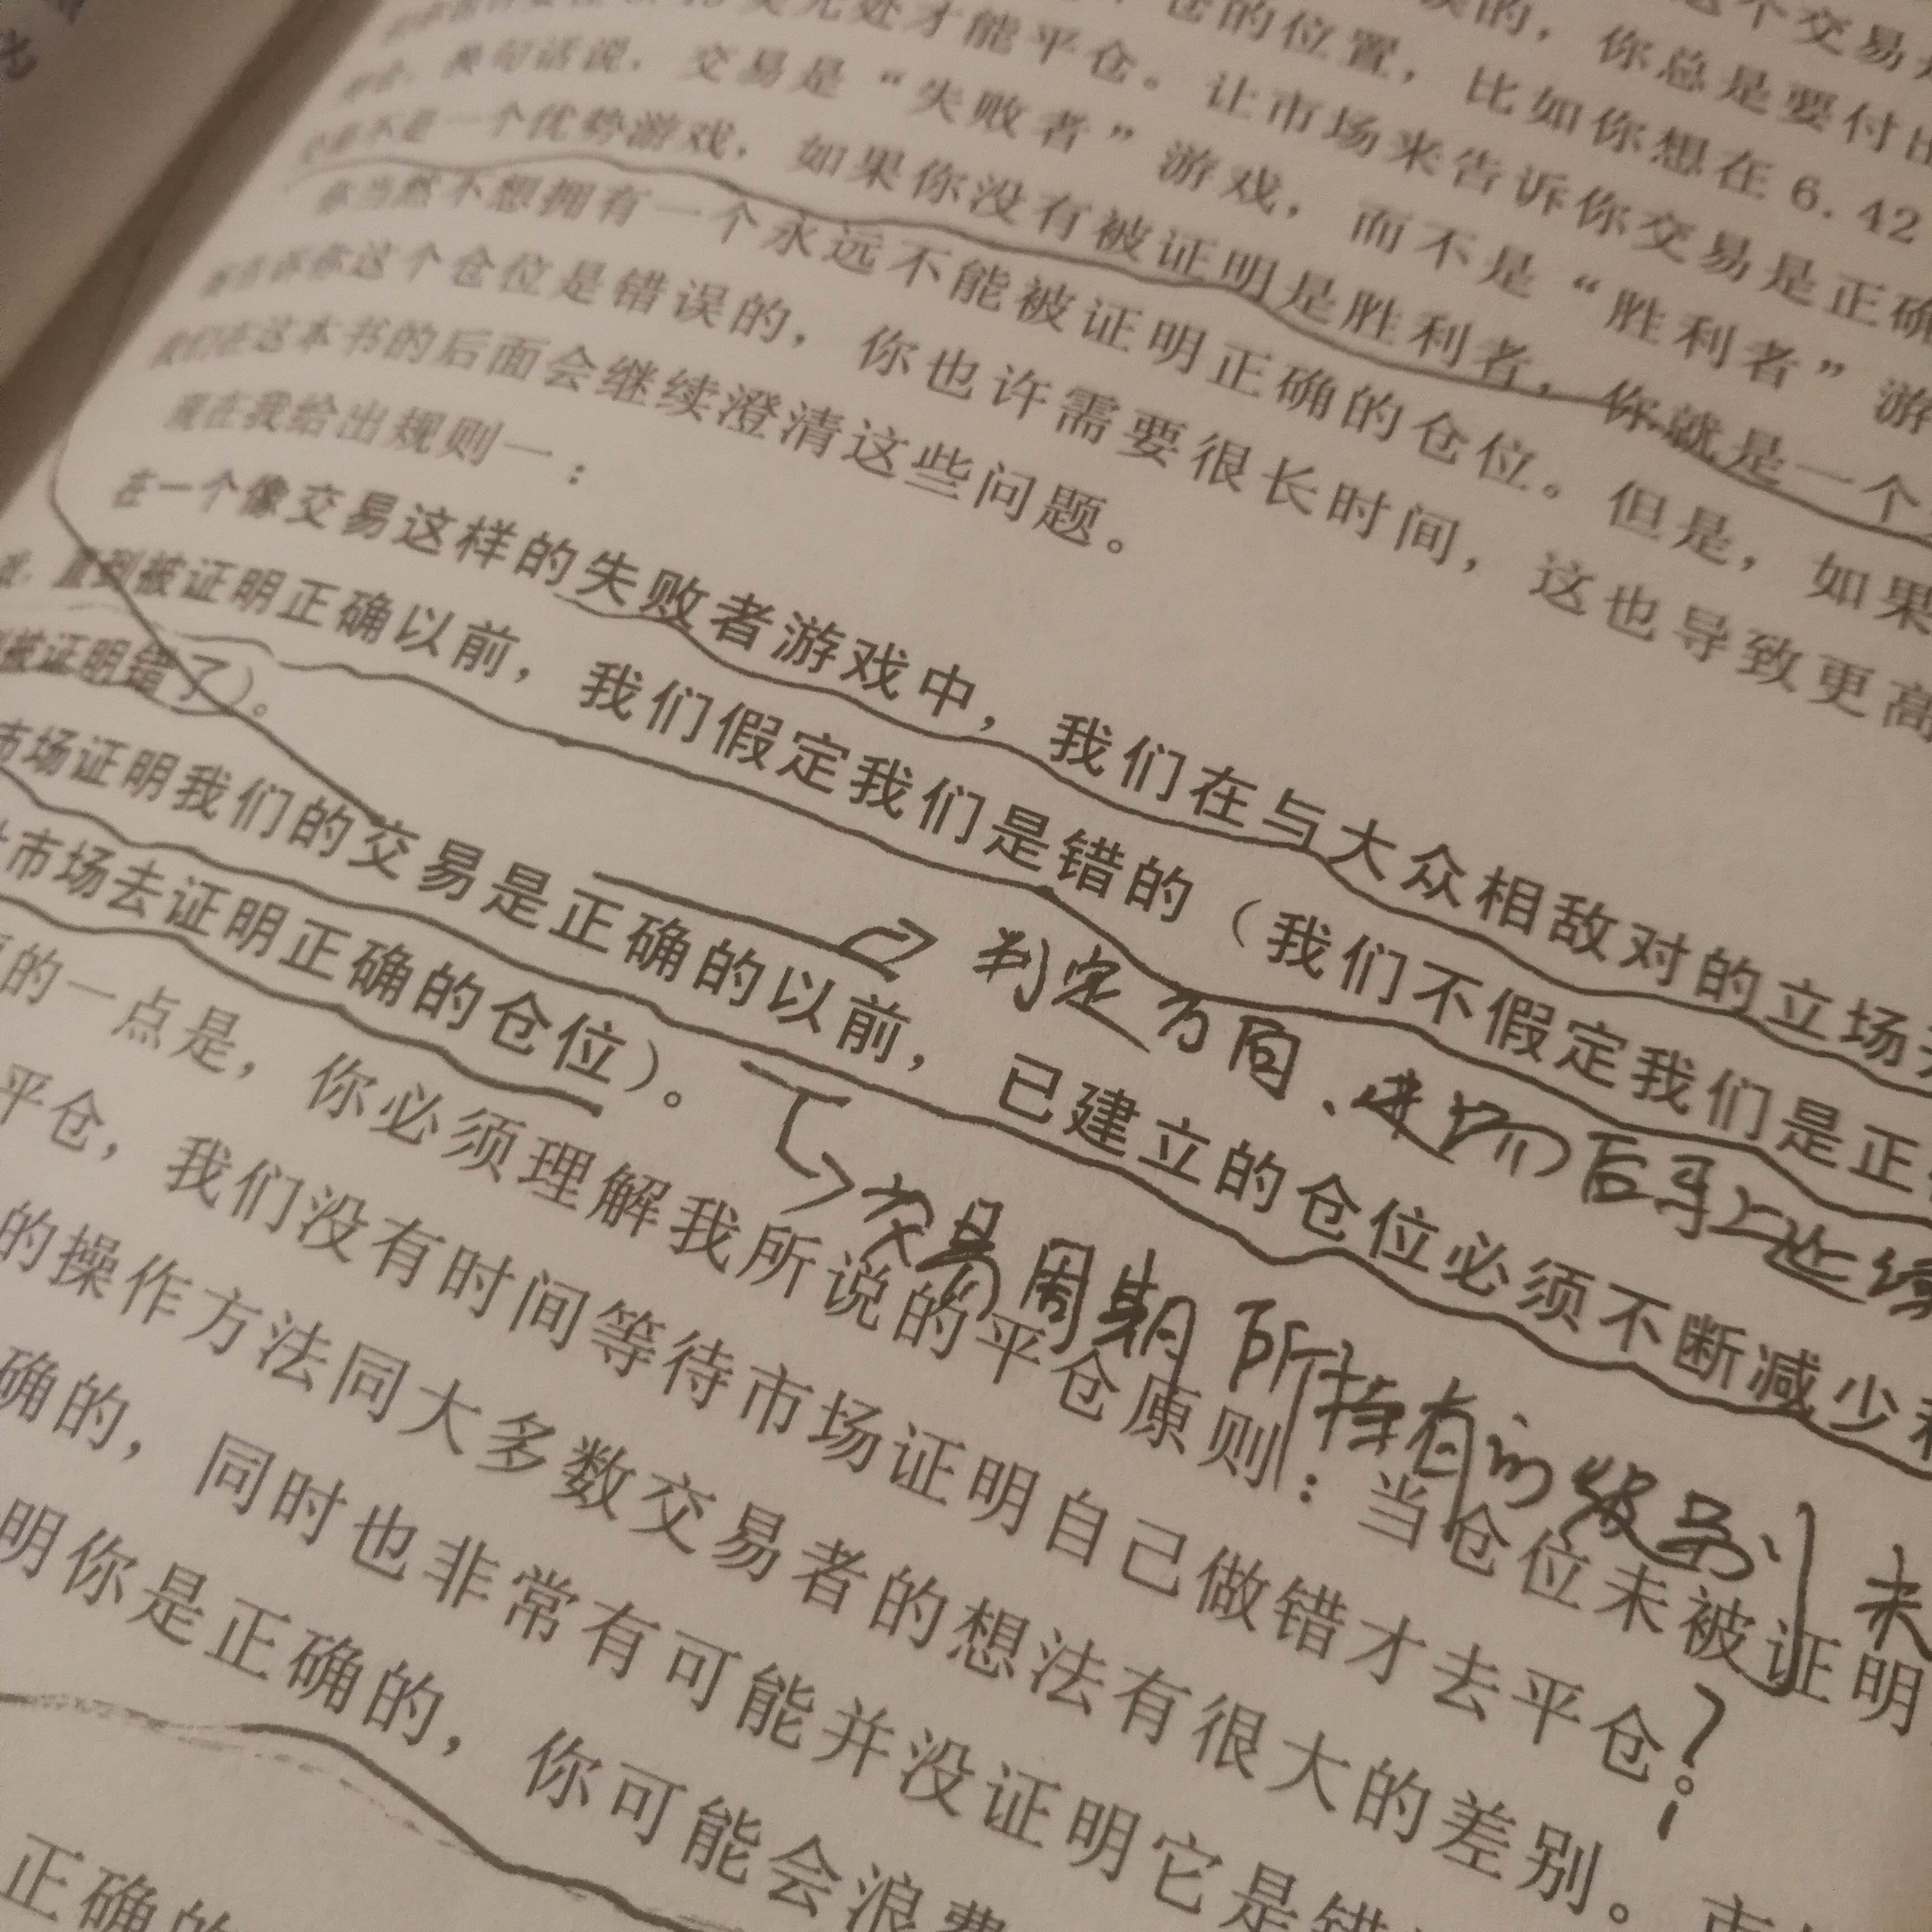 这个交易是
误的，你总是要付出
仓的位置，比如你想在6.42
美元处才能平仓。让市场来告诉你交易是正确
换句话说，交易是“失败者”游戏，而不是“胜利者”游
不是一个优势游戏，如果你没有被证明是胜利者，你就是一个
你当然不想拥有一个永远不能被证明正确的仓位。但是，如果
告诉你这个仓位是错误的，你也许需要很长时间，这也导致更高
我们在这本书的后面会继续澄清这些问题。
现在我给出规则一：
在一个像交易这样的失败者游戏中，我们在与大众相敌对的立场
戏，直到被证明正确以前，我们假定我们是错的（我们不假定我们是正
被证明错了）。
判定方向、进场后手上连续
市场证明我们的交易是正确的以前，已建立的仓位必须不断减少
市场去证明正确的仓位）。
交易周期所持有的级别 未
的一点是，你必须理解我所说的平仓原则：当仓位未被证明
平仓，我们没有时间等待市场证明自己做错才去平仓。
的操作方法同大多数交易者的想法有很大的差别。市
确的，同时也非常有可能并没证明它是错
明你是正确的，你可能会浪费
正确的